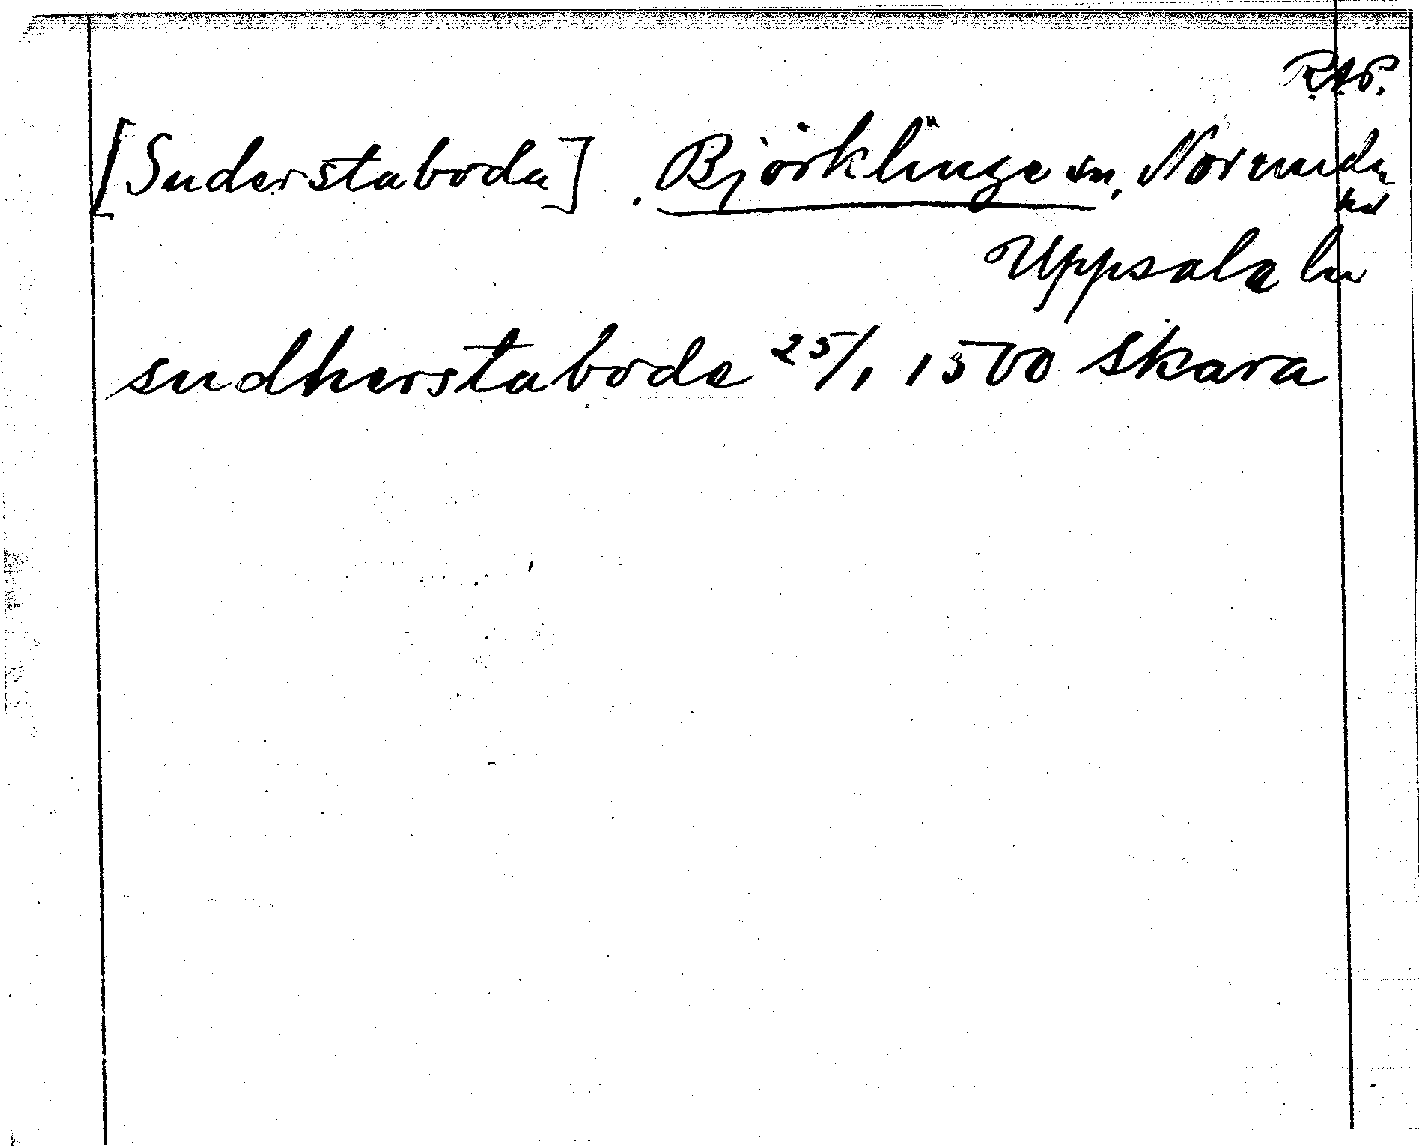 RAP.
[Suderstaboda]. Björklinge sn, Norunda
hd
Uppsala län
sudherstaboda 25/1 1500 Skara